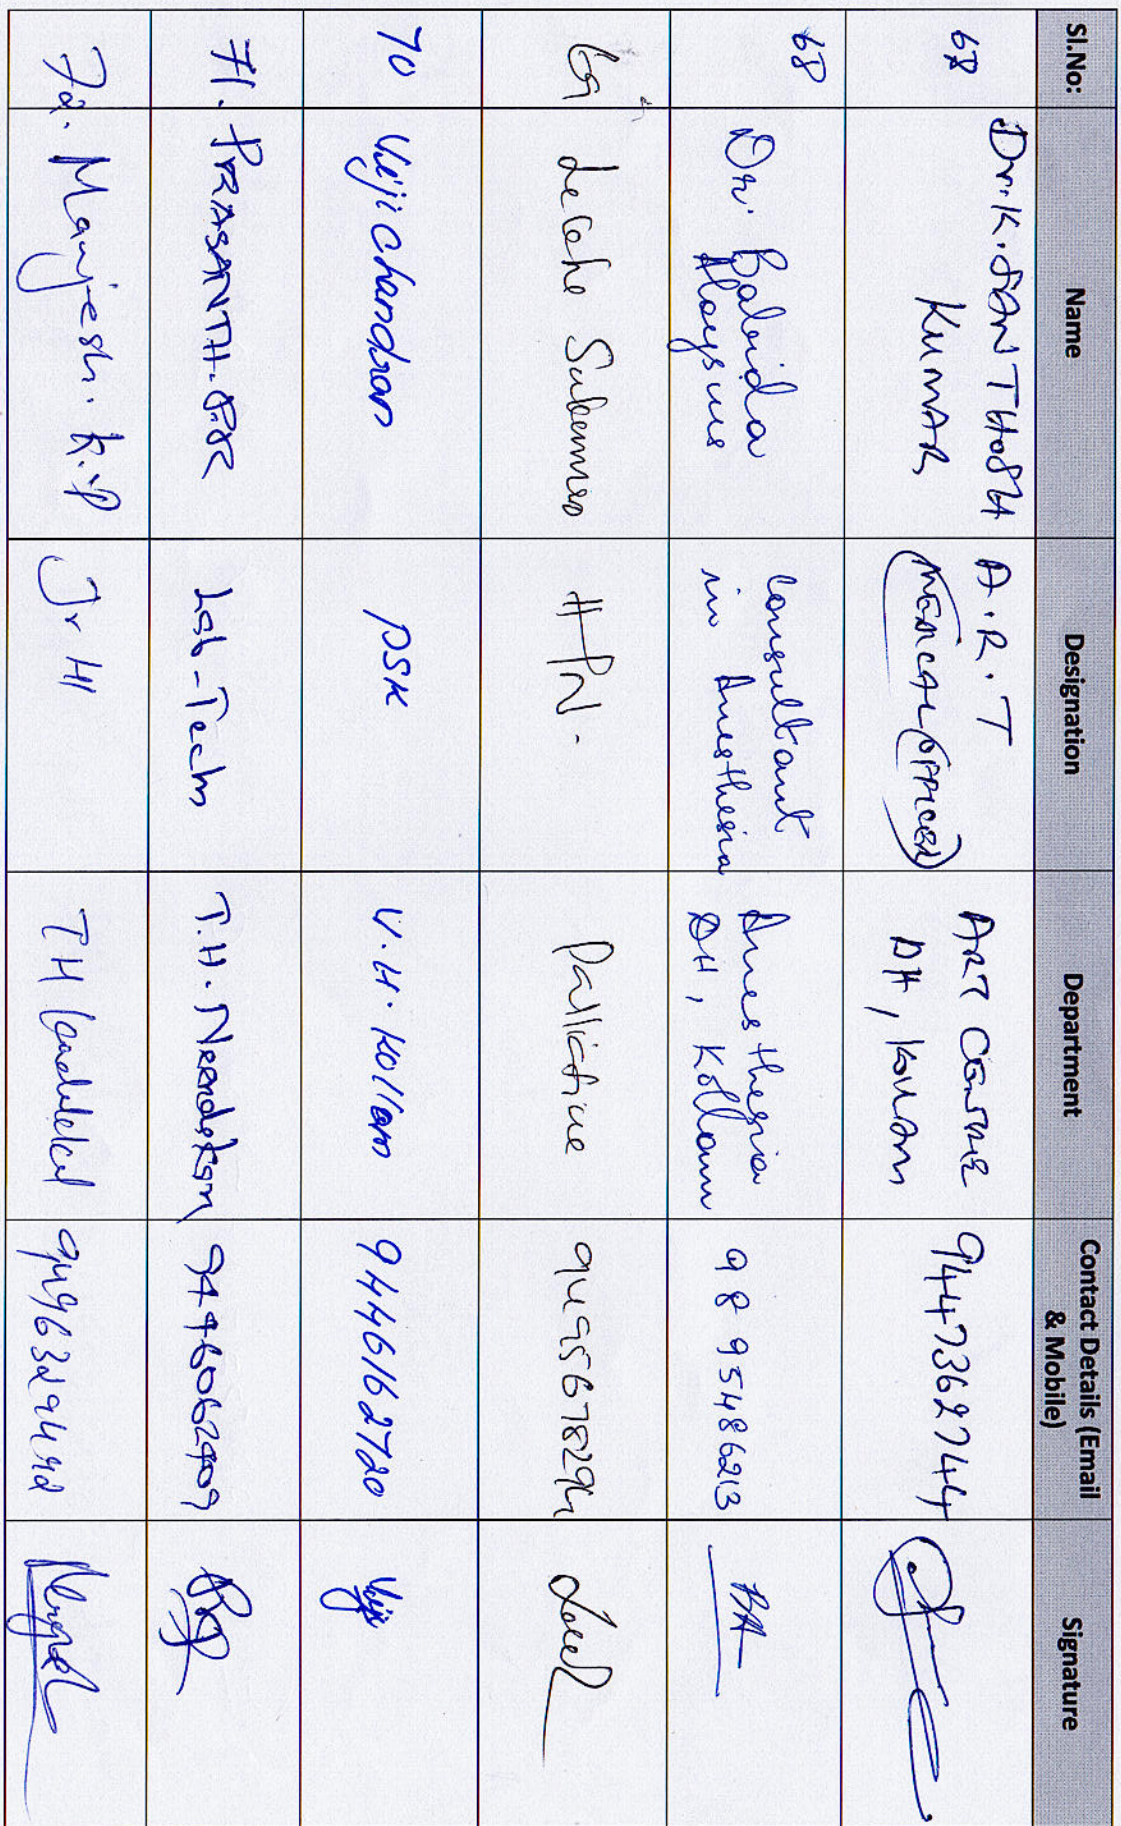 Sl.No: Name Designation Department Contact Details (Email & Mobile) Signature
68 Dr. K. SANTHOSH KUMAR A.R.T (MEDICAL OFFICER) ART CENTRE DH, KOLLAM 9447362744
68 Dr. Aloysius Consultant in Anesthesia Anesthesia DH, Kollam 9895486213 BA
69 HPN. Palliative 9495678294
70 Viji chandran PSK V.H. Kollam 9446162720 Viji
71. PRASANTH. Lab-Tech T.H. Neendakara
72. Manjesh. K.P Jr HI TH